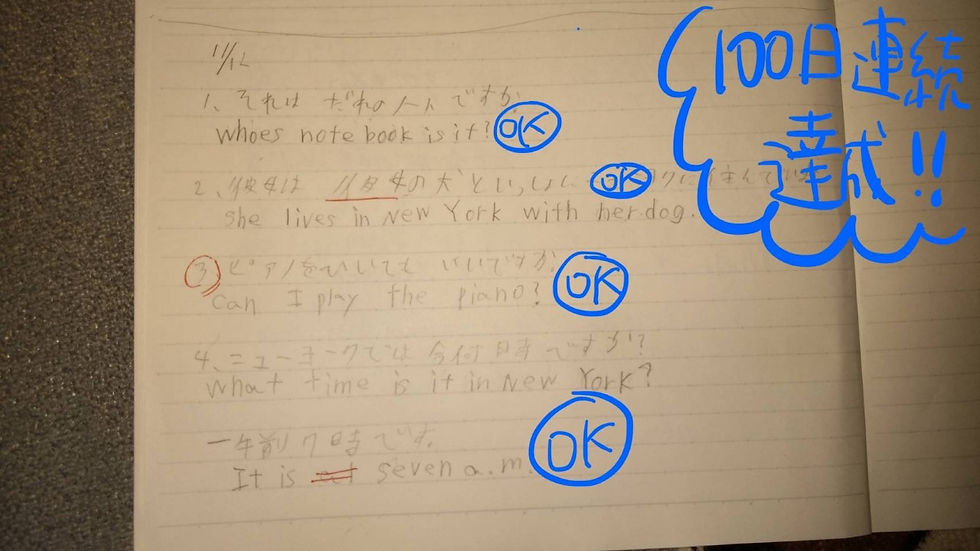 11/12
100日連続
達成!!
1、それは だれのノートですか
whoes note book is it?
OK
2、彼女は 彼女の犬 といっしょに
OK
she lives in New York with her dog.
3 ピアノをひいても いいですか
can I play the piano?
OK
4、ニューヨークでは 今何時ですか?
What time is it in New York?
一午前7時です。
It is seven a.m.
OK